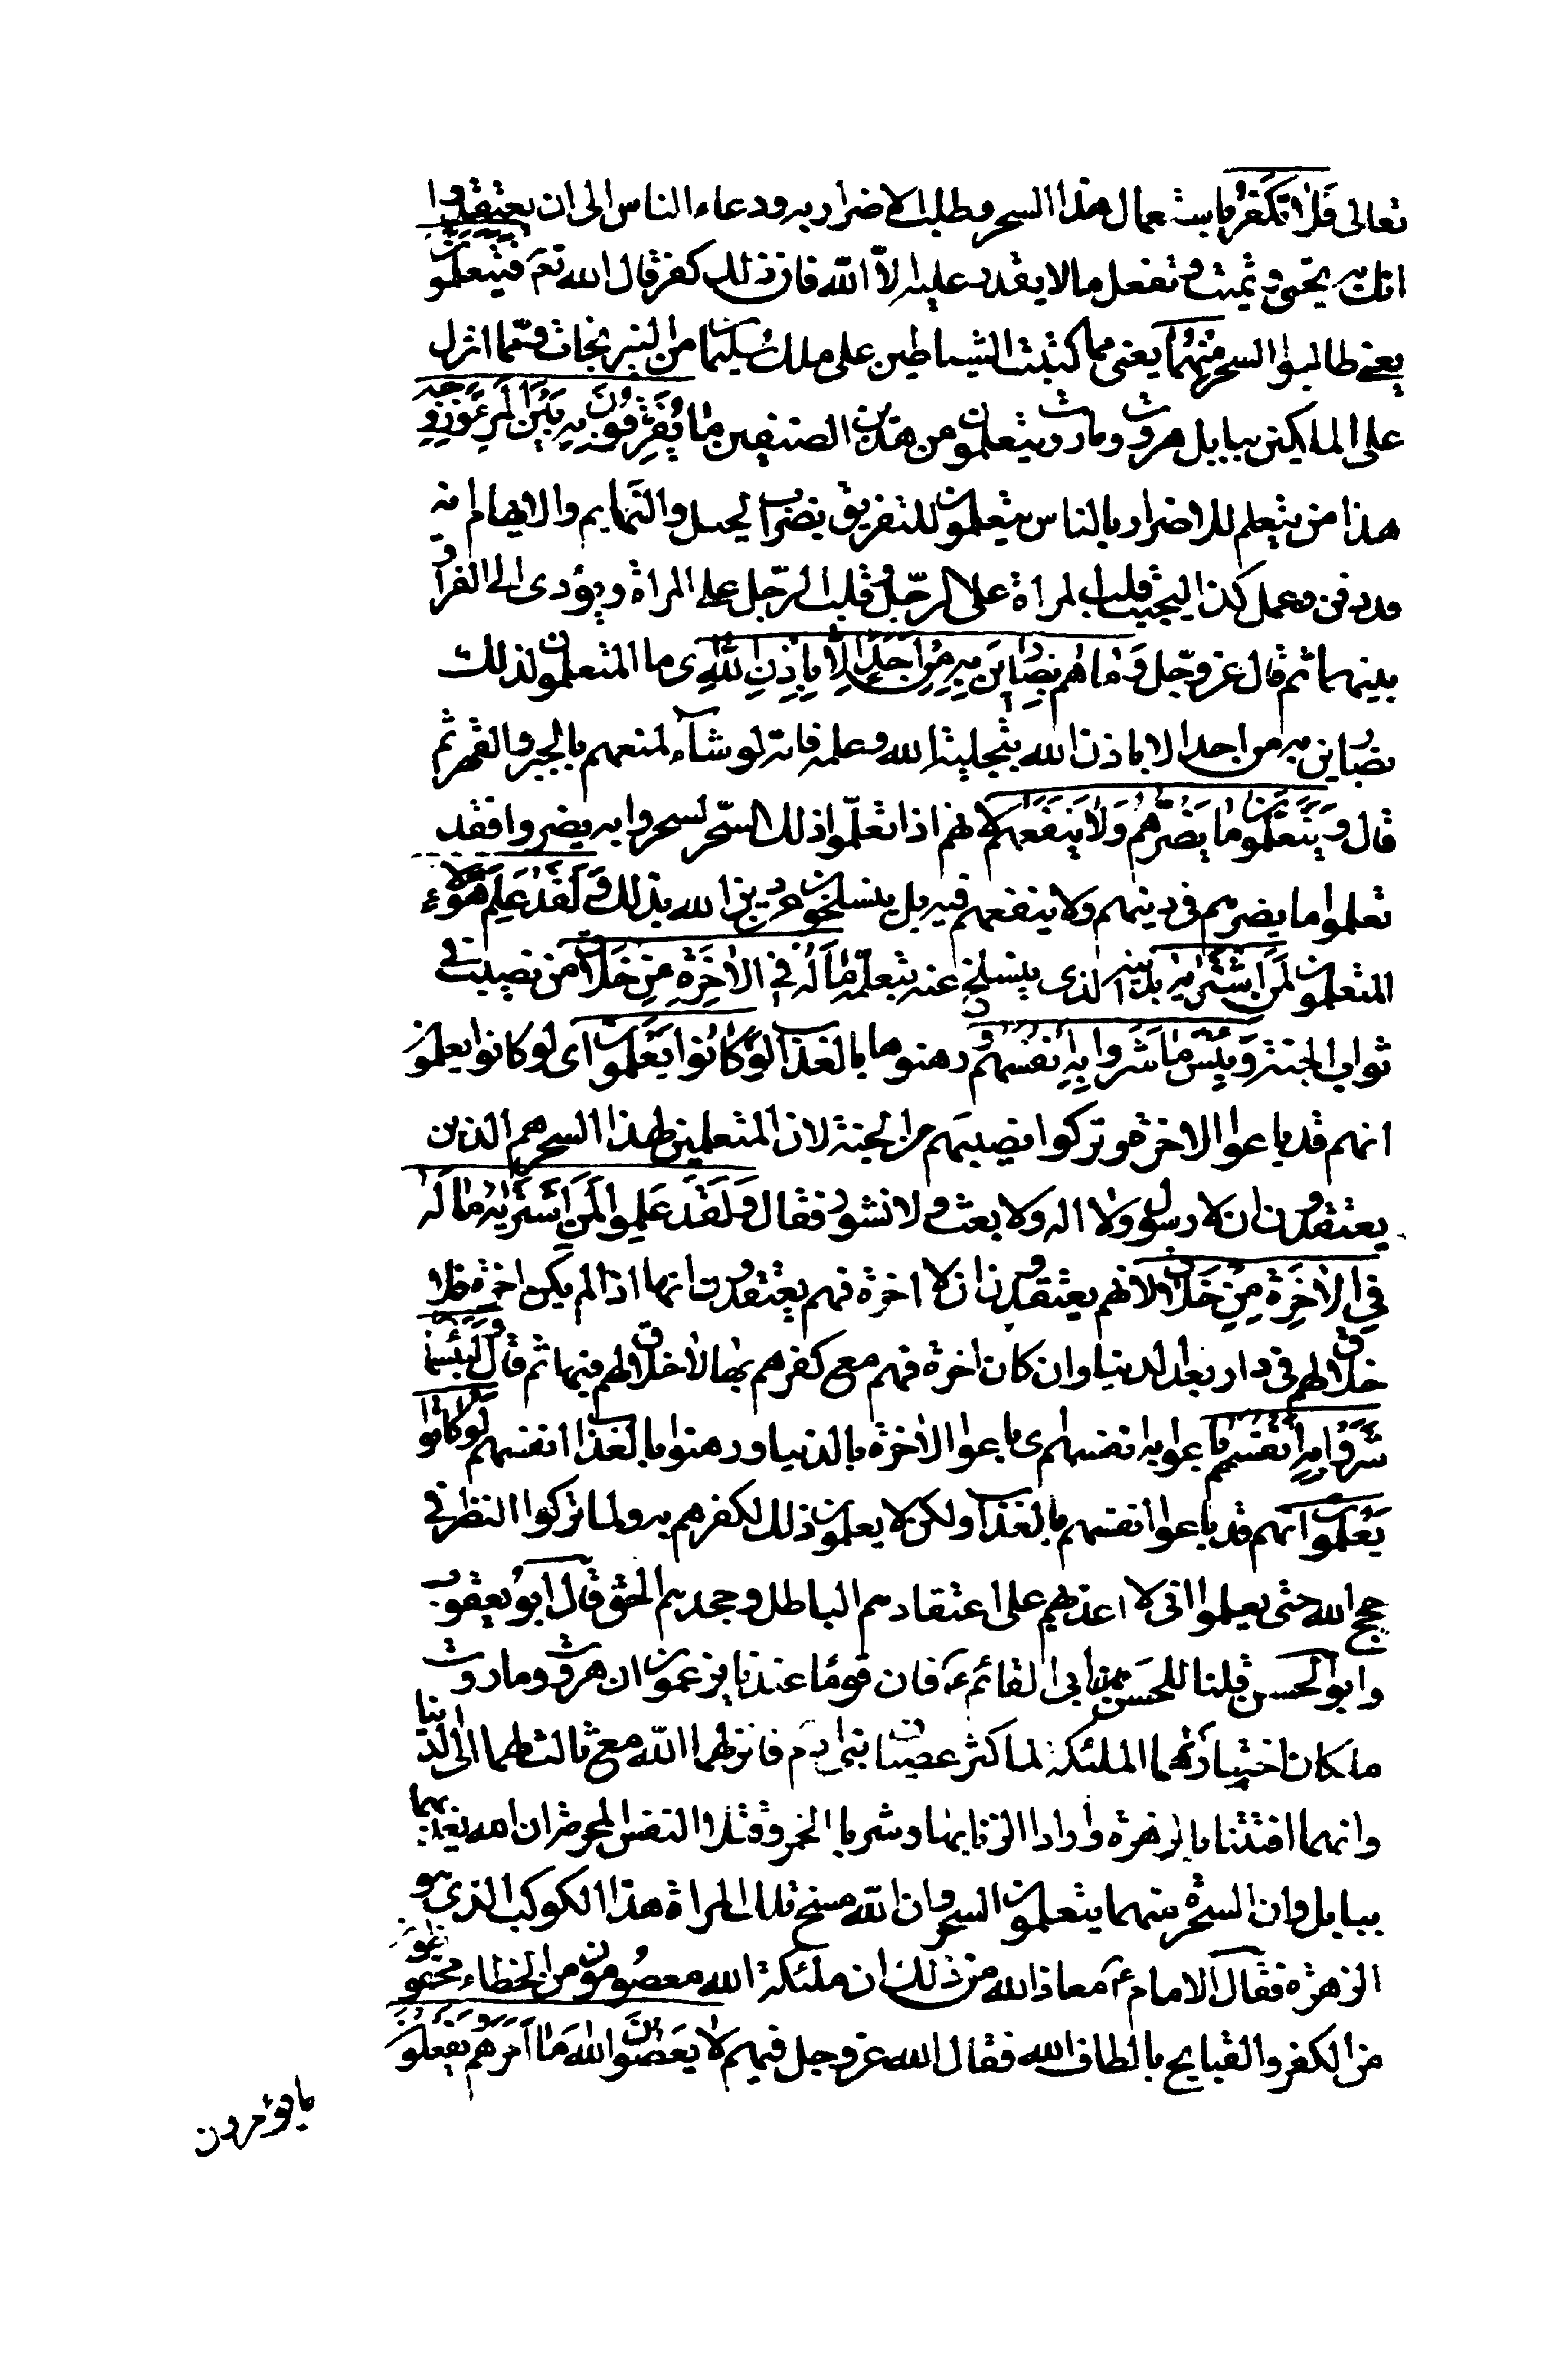 تعالى فَلٰا تَكْفُرْ باستعمال هذا السحر وطلب الاضرار به ودعاء الناس الى ان يعتقدوا
انك به تحيى وتميت وتفعل ما لا يقدر عليه الّا اللّه فان ذلك كفر قال الله تعَ فيتعلمون
يعنى طالبوا السحر مِنْهُمٰا يعنى مما كتبت الشياطين على ملك سليمان من النيرنجات وممّا انزل
على الملكين ببابل هروت ومارت يتعلمون من هذين الصنفين مٰا يُفَرِّقُونَ بِهِ بَيْنَ الْمَرْءِ وَزَوْجِهِ
هذا من يتعلم للاضرار بالناس يتعلمون للتفريق بضرب الحيل والتمايم والايهام انه
قد دفن وعمل كذا ليحبب قلب المراة على الرّجل وقلب الرّجل على المراة ويؤدى الى الفراق
بينهما ثم قال عزوجّل وَمٰا هُمْ بِضٰارّينَ بِهِ مِنْ اَحَدٍ اِلّٰا بِاِذْنِ اللّٰهِ اى ما المتعلمون لذلك
بضارين به من احد الا باذن الله بتخلية الله وعلمه فانه لو شآء لمنعهم بالجبر والقهر ثم
قال وَيَتَعَلَّمُونَ مٰا يَضُرُّهُمْ وَلٰا يَنْفَعُهُمْ لانهم اذا تعلّموا ذلك السّحر لسحروا به ويضروا فقد
تعلموا ما يضرهم فى دينهم ولا ينفعهم فيه بل ينسلخون عن دين الله بذلك وَلَقَدْ عَلِمَ هؤلاء
المتعلمون لَمَنِ اشْتَرٰيهُ بدينه الذى ينسلخ عنه بتعلمه مٰا لَهُ فِى الْاٰخِرَةِ مِنْ خَلٰاقٍ من نصيب فى
ثواب الجنة وَبِئْسَ مٰا شَرَوْا بِهِ اَنْفُسَهُمْ ورهنوها بالعذاب لَوْ كٰانُوا يَعْلَمُونَ اى لو كانوا يعلمون
انهم قد باعوا الاخرة وتركوا نصيبهم من الجنة لان المتعلمين لهذا السحر هم الذين
يعتقدون ان لا رسول ولا اله ولا بعث ولا نشور فقال وَلَقَدْ عَلِمُوا لَمَنِ اشْتَرٰيهُ مٰا لَهُ
فِى الْاٰخِرَةِ مِنْ خَلٰاقٍ لانهم يعتقدون ان لا اخرة فهم يعتقدون انها اذا لم يكن اخرة فلا
خلاق لهم فى دار بعد الدنيا وان كان اخرة فهم مع كفرهم بها لا خلاق لهم فيها ثم قال وَلَبِئْسَمٰا
شَرَوْا بِهِ اَنْفُسَهُمْ باعوا به انفسهم اى باعوا الاخرة بالدنيا ورهنوا بالعذاب انفسهم لَوْ كٰانُوا
يَعْلَمُونَ انهم قد باعوا انفسهم بالعذاب ولكن لا يعلمون ذلك لكفرهم به ولما تركوا النظر فى
حجج الله حتى يعلموا انى لا اعذبهم على اعتقادهم الباطل وجحدهم الحق قال ابو يعقوب
وابو الحسن قلنا للحسن ابى القائم عَ فان قومًا عندنا يزعمون ان هروت وماروت
ملكان اختيارتهما الملئكة لما كثر عصيان بنى ادم فانزلهما اللّه مع ثالث لهما الى الدنيا
وانهما افتتنا بالزهرة وارادا الزنا بها وشربا الخمر وقتلا النفس المحرمة ان الله يعذبهما
ببابل وان السحرة منهما يتعلمون السحر وان اللّه مسخ تلك المراة هذا الكوكب الذى هو
الزهرة فقال الامام عَ معاذ الله من ذلك ان ملئكة الله معصومون من الخطاء محفوظون
من الكفر والقبايح بالطاف الله فقال الله عزوجل فيهم لٰا يَعْصُونَ اللّٰهَ مٰا اَمَرَهُمْ وَيَفْعَلُونَ
ما يؤمرون